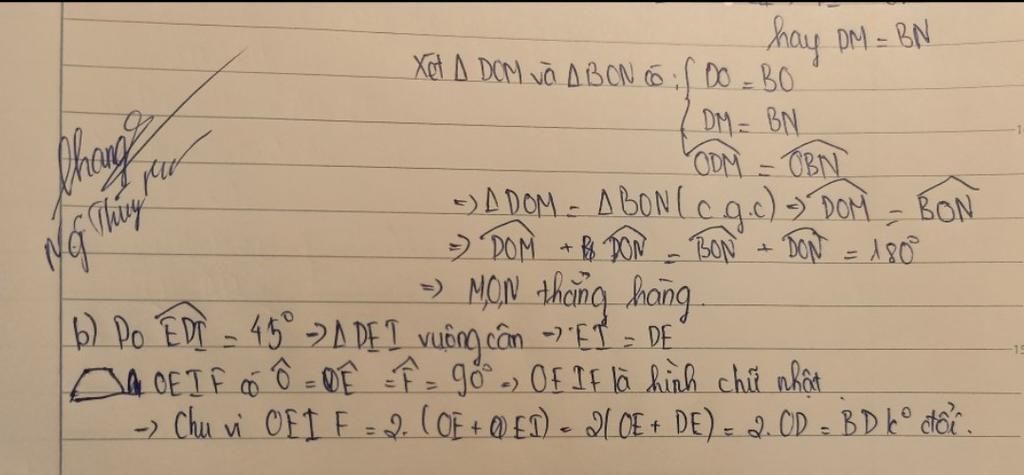 hay DM = BN
Xét Δ DOM và Δ BON có : { DO = BO
DM = BN
∠ODM = ∠OBN
=> Δ DOM = Δ BON ( c.g.c) => ∠DOM = ∠BON
=> ∠DOM + ∠DON = ∠BON + ∠DON = 180°
=> M,O,N thẳng hàng.
NG Thùy
b) Do ∠EDI = 45° -> Δ DEI vuông cân -> EI = DE
OEIF có Ô = Ê = F̂ = 90° => OEIF là hình chữ nhật
-> Chu vi OEIF = 2. (OE + EI) = 2(OE + DE) = 2.OD = BD k° đổi.